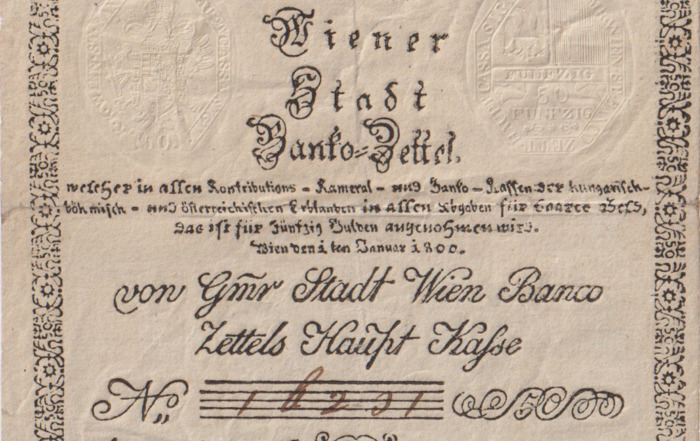 Wiener
Stadt
Banko=Zettel.
FUNFZIG
50
FUNFZIG
welcher in allen Kontributions = Kameral = und Banko = Kassen der hungarisch=
böhmisch = und österreichischen Erblanden in allen Abgaben für baares Geld,
das ist für Fünfzig Gulden angenohmen wird.
Wien den 1ten Januar 1800.
von Gmr Stadt Wien Banco
Zettels Haupt Kasse
No. 50